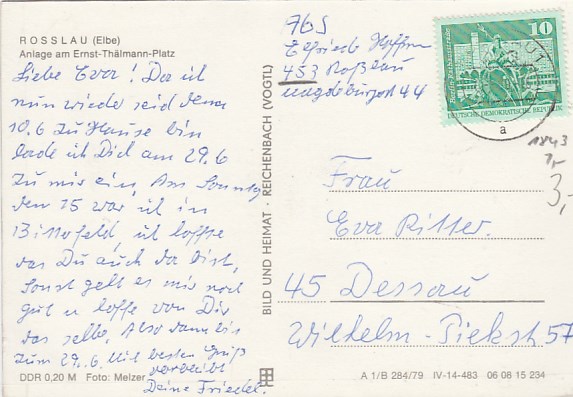 ROSSLAU (Elbe)
Anlage am Ernst-Thälmann-Platz
Liebe Eva! Da ich
nun wieder seid dem
10.6 zu Hause bin
lade ich Dich am 29.6
zu mir ein, Am Sonntag
den 15 war ich in
Bitterfeld, ich hoffte
das Du auch da bist,
Sonst geht es mir noch
gut u hoffe von Dir
das selbe, Also dann bis
zum 29.6. Mit besten Gruß
verbleibt
Deine Friedel.
DDR 0,20 M Foto: Melzer
BILD UND HEIMAT · REICHENBACH (VOGTL)
Elfriede
453 Roßlau
Magdeburgerst 44
10
DEUTSCHE DEMOKRATISCHE REPUBLIK
a
1843
3,-
Frau
Eva Ritter.
45 Dessau
Wilhelm-Piekst. 57
A 1/B 284/79 IV-14-483 06 08 15 234